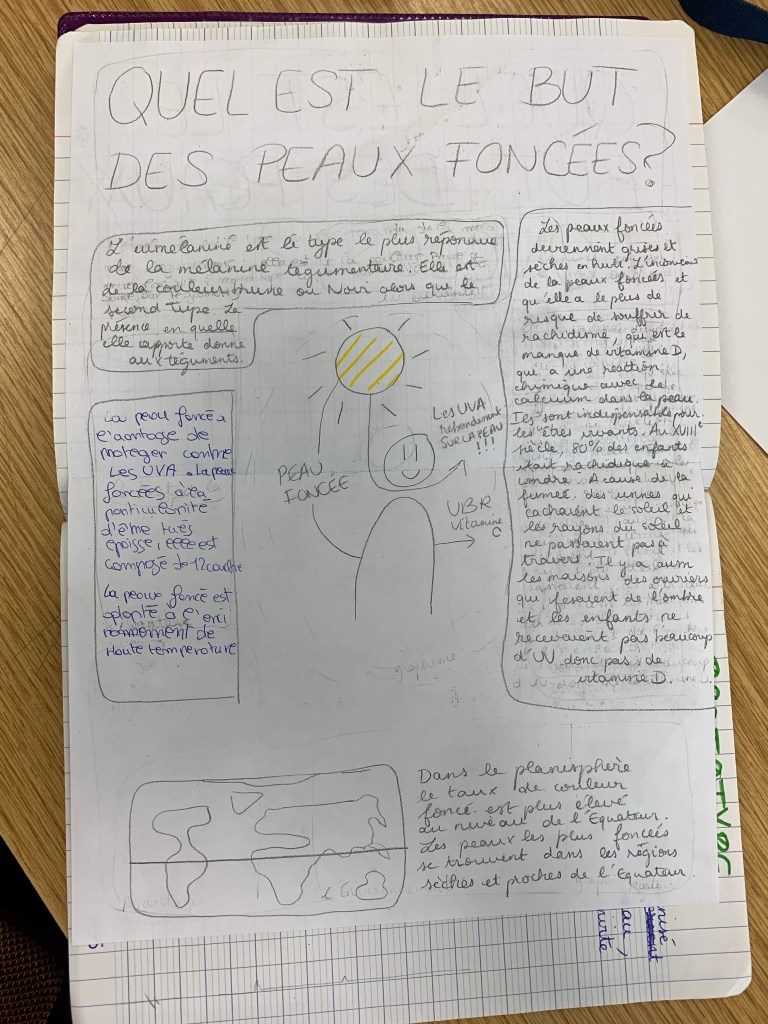 QUEL EST LE BUT
DES PEAUX FONCÉES?
L'eumélanine est le type le plus répondue
de la mélanine tégumentaire. Elle est
de la couleur brune ou Noir alors que le
second type. La
présence en quelle
elle apporte donne
aux téguments.
La peau foncé a
l'avantage de
proteger contre
Les UVA. La peau
foncées à la
particularité
d'être très
epoisse, elle est
composé de 12 couche
La peau foncé est
adapté à l'envi
ronnement de
Haute temperature
PEAU
FONCÉE
Les UVA
rebondement
SUR LA PEAU
!!!
UBR
Vitamine
C
Les peaux foncées
deviennent grises et
sèches en hiver. L'inconvénient
de la peaux foncées et
qu'elle a le plus de
risque de souffrir de
rachidisme, qui est le
manque de vitamine D,
qui a une reaction
chymique avec le
calcuium dans la peau.
Ils sont indispensable pour
les êtres vivants. Au XVIIIe
siècle, 80% des enfants
était rachidique à
Londre. A cause de la
fumée des usines qui
cachaient le soleil et
les rayons du soleil
ne passaient pas à
travers. Il y a aussi
les maisons des ouvriers
qui fesaient de l'ombre
et les enfants ne
recevaient pas beaucoup
d'UV donc pas de
vitamine D.
graphisme
Dans le planisphère
le taux de couleur
foncé est plus élevé
au niveau de l'Equateur.
Les peaux les plus foncées
se trouvent dans les régions
sèches et proches de l'Equateur.